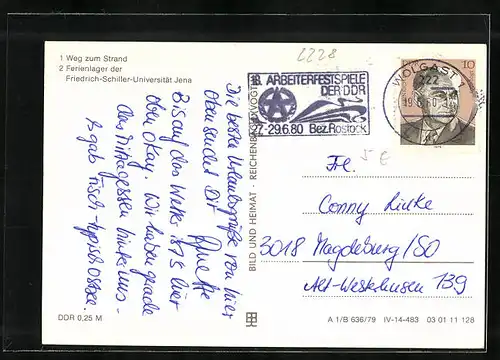 1 Weg zum Strand
2 Ferienlager der
Friedrich-Schiller-Universität Jena
2228
18. ARBEITERFESTSPIELE
DER DDR
27.-29.6.80 Bez. Rostock
WOLGAST 1
222
10
5 €
Die besten Urlaubsgrüße von hier
übersendet Dir Annette
Bis auf das Wetter ist's hier
oben okay. Wir haben gerade
das Mittagessen hinter uns -
es gab Fisch - typisch Ostsee.
BILD UND HEIMAT · REICHENBACH (VOGTL)
Frl.
Conny Linke
3018 Magdeburg/SO
Alt-Westerhüsen 139
DDR 0,25 M
A 1/B 636/79 IV-14-483 03 01 11 128